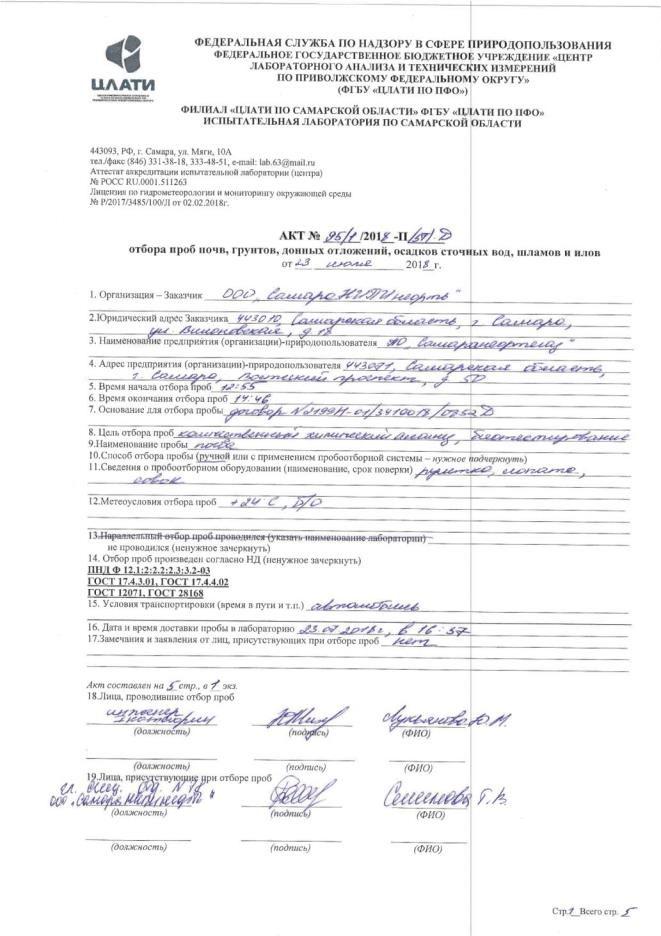 ЦЛАТИ
ФЕДЕРАЛЬНАЯ СЛУЖБА ПО НАДЗОРУ В СФЕРЕ ПРИРОДОПОЛЬЗОВАНИЯ
ФЕДЕРАЛЬНОЕ ГОСУДАРСТВЕННОЕ БЮДЖЕТНОЕ УЧРЕЖДЕНИЕ «ЦЕНТР
ЛАБОРАТОРНОГО АНАЛИЗА И ТЕХНИЧЕСКИХ ИЗМЕРЕНИЙ
ПО ПРИВОЛЖСКОМУ ФЕДЕРАЛЬНОМУ ОКРУГУ»
(ФГБУ «ЦЛАТИ ПО ПФО»)
ФИЛИАЛ «ЦЛАТИ ПО САМАРСКОЙ ОБЛАСТИ» ФГБУ «ЦЛАТИ ПО ПФО»
ИСПЫТАТЕЛЬНАЯ ЛАБОРАТОРИЯ ПО САМАРСКОЙ ОБЛАСТИ
443093, РФ, г. Самара, ул. Мяги, 10А
тел./факс (846) 331-38-18, 333-48-51, e-mail: lab.63@mail.ru
Аттестат аккредитации испытательной лаборатории (центра)
№ РОСС RU.0001.511263
Лицензия по гидрометеорологии и мониторингу окружающей среды
№ Р/2017/3485/100/Л от 02.02.2018г.
АКТ № 95/1 /2018 -П/ -Д
отбора проб почв, грунтов, донных отложений, осадков сточных вод, шламов и илов
от 23 июля 2018 г.
1. Организация – Заказчик ООО "СамараНИПИнефть"
2.Юридический адрес Заказчика 443010, Самарская область, г. Самара,
ул. Вилоновская, д. 18
3. Наименование предприятия (организации)-природопользователя АО "Самаранефтегаз"
4. Адрес предприятия (организации)-природопользователя 443071, Самарская область,
г. Самара, Волжский проспект, д. 50
5. Время начала отбора проб 12:55
6. Время окончания отбора проб 14:46
7. Основание для отбора пробы договор
8. Цель отбора проб количественный химический анализ, биотестирование
9.Наименование пробы почва
10.Способ отбора пробы (ручной или с применением пробоотборной системы – нужное подчеркнуть)
11.Сведения о пробоотборном оборудовании (наименование, срок поверки) рулетка, лопата,
совок
12.Метеоусловия отбора проб +24°С, Б/О
13.Параллельный отбор проб проводился (указать наименование лаборатории)
не проводился (ненужное зачеркнуть)
14. Отбор проб произведен согласно НД (ненужное зачеркнуть)
ПНД Ф 12.1:2:2.2:2.3:3.2-03
ГОСТ 17.4.3.01, ГОСТ 17.4.4.02
ГОСТ 12071, ГОСТ 28168
15. Условия транспортировки (время в пути и т.п.) автомобиль
16. Дата и время доставки пробы в лабораторию 23.07.2018г, в 16:57
17.Замечания и заявления от лиц, присутствующих при отборе проб нет
Акт составлен на 5 стр., в 1 экз.
18.Лица, проводившие отбор проб
инженер
Лукьянова Ю.М.
(должность) (подпись) (ФИО)
(должность) (подпись) (ФИО)
19.Лица, присутствующие при отборе проб
гл. спец. отд. №
ООО "СамараНИПИнефть" Семенова Т.В.
(должность) (подпись) (ФИО)
(должность) (подпись) (ФИО)
Стр.1 Всего стр. 5